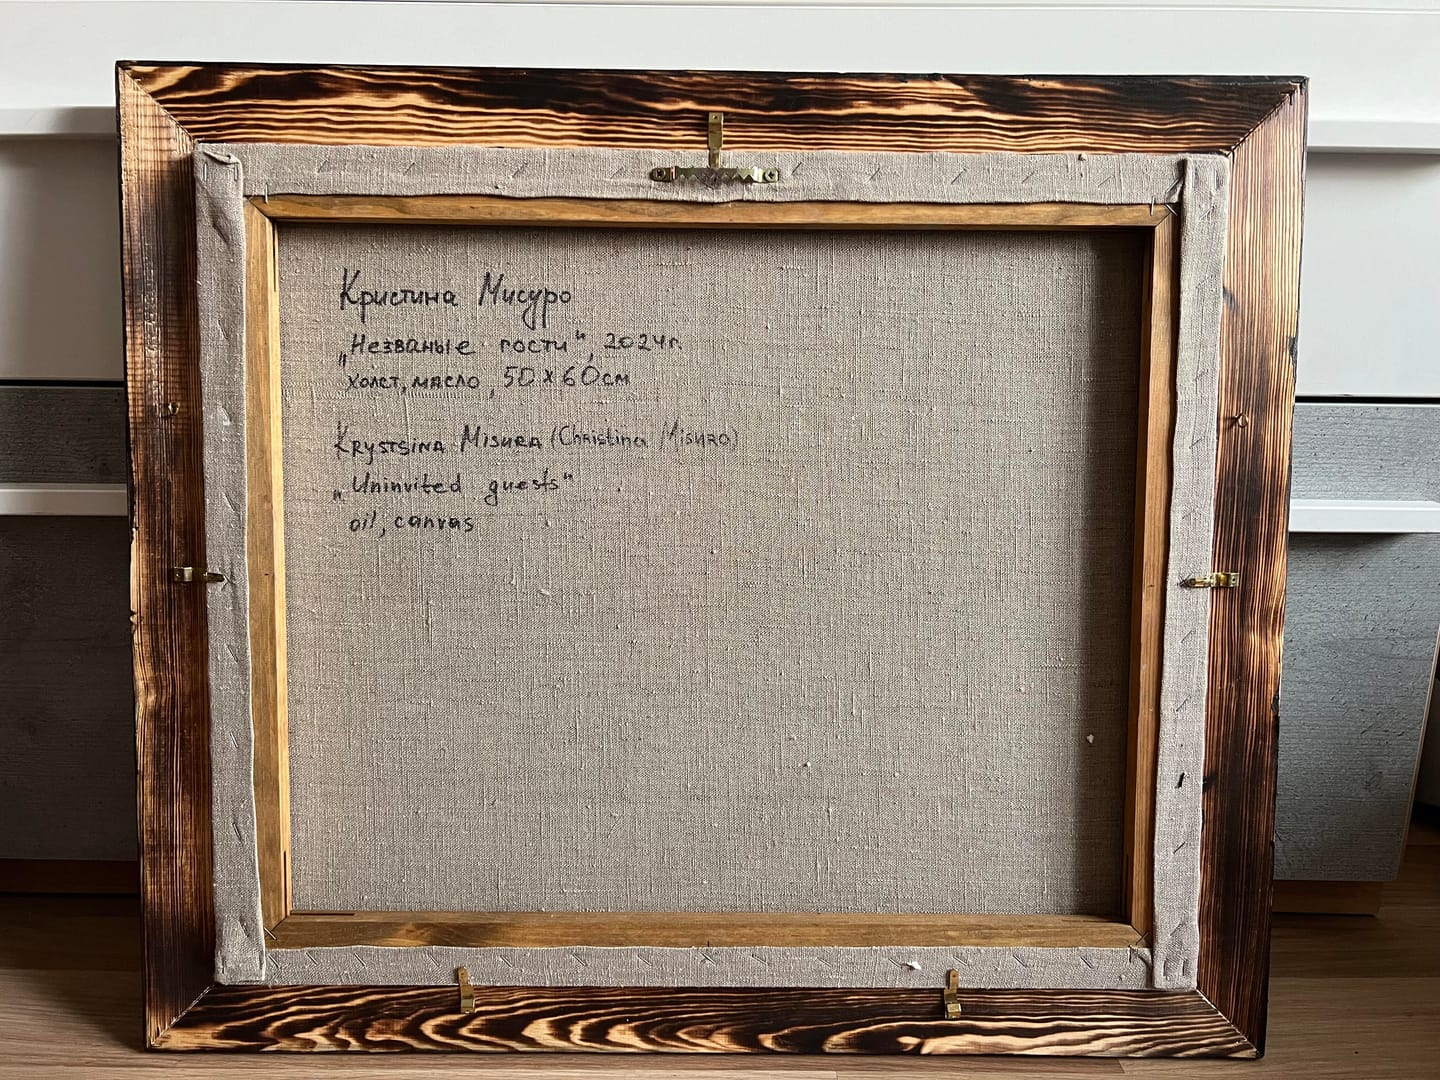 Кристина Мисуро
„Незваные гости“, 2024г.
холст, масло, 50 x 60см
Krystsina Misura (Christina Misuro)
„Uninvited guests“
oil, canvas